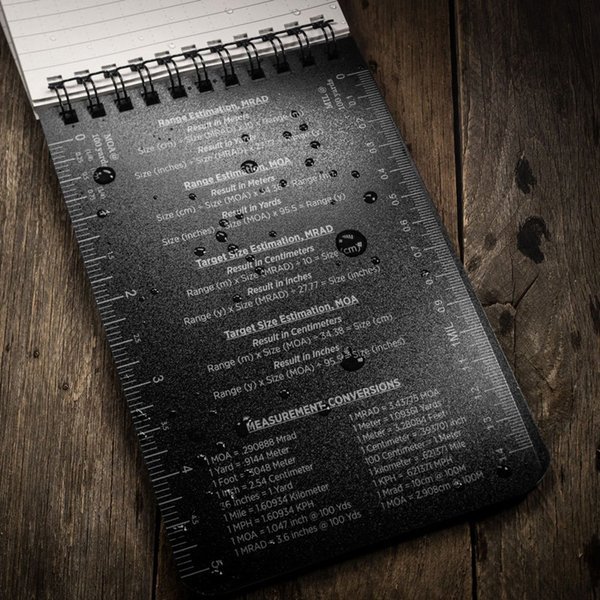 Range Estimation, MRAD
Result in Meters
Size (cm) ÷ Size (MRAD)
Result in Yards
Size (inches) ÷ Size
Range Estimation, MOA
Result in Meters
Size (cm) ÷ Size (MOA) x 34.38 = Range
Result in Yards
Size (inches) Size (MOA) x 95.5 = Range (y)
Target Size Estimation, MRAD
Result in Centimeters
Range (m) x Size (MRAD) ÷ 10 = Size (cm)
Result in Inches
Range (y) x Size (MRAD) ÷ 27.77 = Size (inches)
Target Size Estimation, MOA
Result in Centimeters
Range (m) x Size (MOA) ÷ 34.38 = Size (cm)
Result in Inches
Range (y) x Size (MOA) ÷ 95.5 = Size (inches)
MEASUREMENT CONVERSIONS
1 MOA = .290888 Mrad
1 Yard = .9144 Meter
1 Foot = .3048 Meter
1 Inch = 2.54 Centimeter
36 inches = 1 Yard
1 Mile = 1.60934 Kilometer
1 MPH = 1.60934 KPH
1 MOA = 1.047 inch @ 100 Yds
1 MRAD = 3.6 inches @ 100 Yds
1 MRAD = 3.43775 MOA
1 Meter = 1.09361 Yards
1 Meter = 3.28082 Feet
1 Centimeter = .39370 inch
100 Centimeter = 1 Meter
1 kilometer = .621371 Mile
1 KPH = .621371 MPH
1 Mrad = 10cm @ 100M
1 MOA = 2.908cm @ 100M
MOA @
100 yards
0
2
3
4
5
MIL @
100 yards
0
0.1
0.2
0.3
0.4
0.5
0.6
0.7
0.8
0.9
1 MIL
1.1
1.2
1.3
1.4